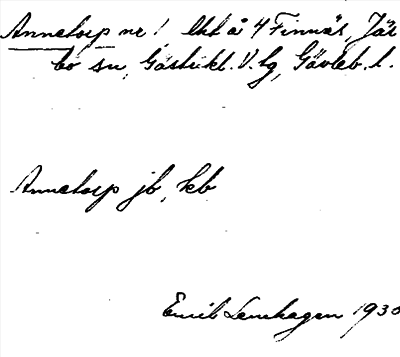 Annetorp nr 1 lht å 4 Finnäs, Jär
bo sn, Gästrikl. V. tg, Gävleb. l.
Annetorp jb, kb
Emil Lenhagen 1930